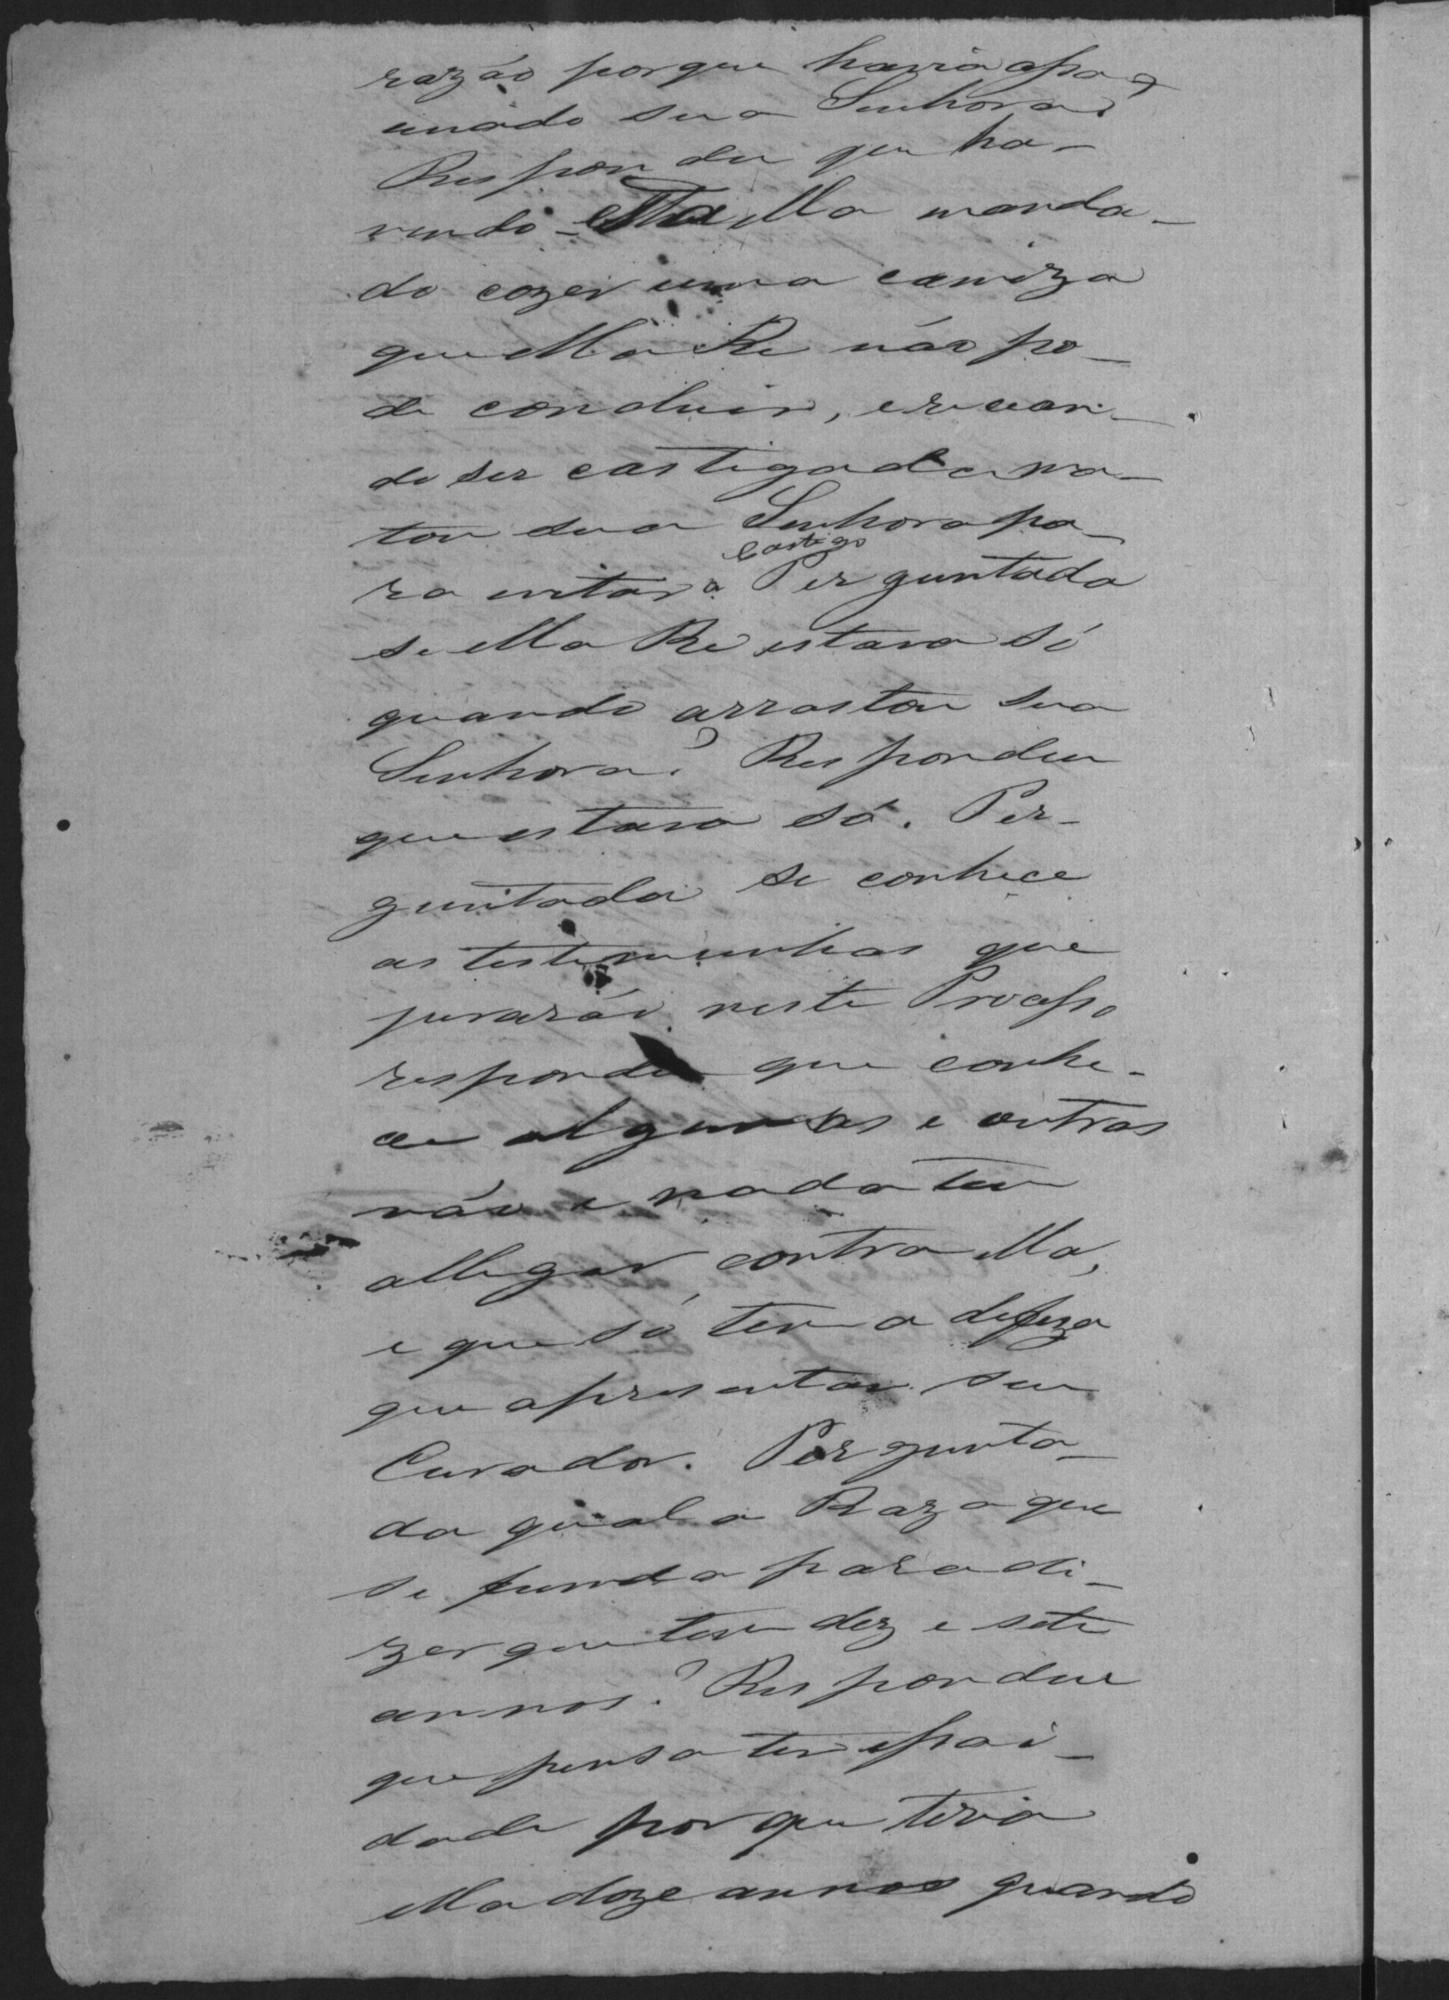 razão porque havia assas-
sinado sua Senhora?
Respondeu que ha-
vendo esta ella manda-
do cozer uma camiza
que ella Re não po-
de concluir, e recean-
do ser castigada ma-
tou sua Senhora pa-
ra evitar o Castigo Perguntada
se ella Re estava só
quando arrastou sua
Senhora? Respondeu
que estava só. Per-
guntada se conhece
as testemunhas que
jurarão neste Processo
respondeu que conhe-
ce algumas e outras
não e nada tem
allegar contra ella,
e que só tem a defeza
que apresentar seu
Curador. Pergunta-
da qual a Razao que
se funda para di-
zer que tem dez e sete
annos? Respondeu
que pensa ter essa i-
dade por que tinha
ella doze annos quando